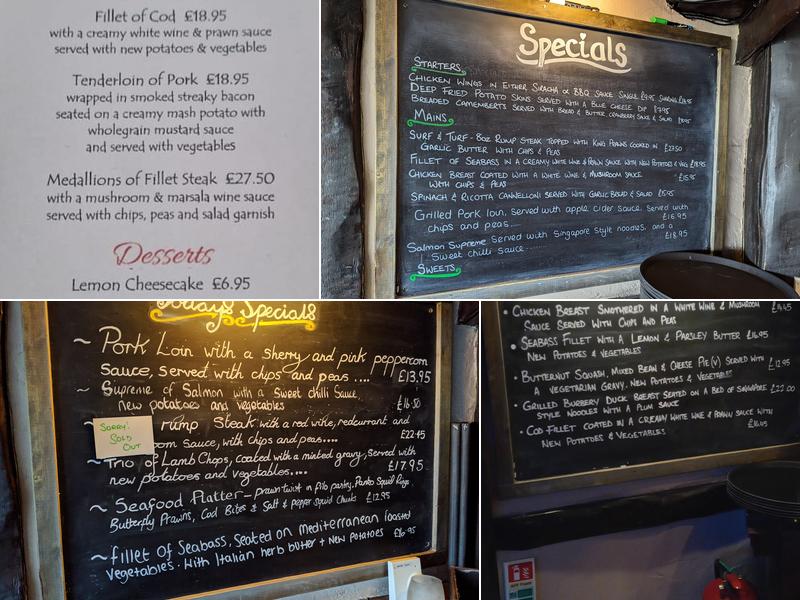 Fillet of Cod £18.95
with a creamy white wine & prawn sauce
served with new potatoes & vegetables
Tenderloin of Pork £18.95
wrapped in smoked streaky bacon
seated on a creamy mash potato with
wholegrain mustard sauce
and served with vegetables
Medallions of Fillet Steak £27.50
with a mushroom & marsala wine sauce
served with chips, peas and salad garnish
Desserts
Lemon Cheesecake £6.95
Specials
STARTERS
CHICKEN WINGS IN EITHER SIRACHA OR BBQ SAUCE SINGLE £9.95 SHARING
DEEP FRIED POTATO SKINS SERVED WITH A BLUE CHEESE DIP £7.95
BREADED CAMEMBERTS SERVED WITH BREAD & BUTTER, CRANBERRY SAUCE & SALAD
MAINS
SURF & TURF - 8OZ RUMP STEAK TOPPED WITH KING PRAWNS COOKED IN
GARLIC BUTTER WITH CHIPS & PEAS £27.50
FILLET OF SEABASS IN A CREAMY WHITE WINE & PRAWN SAUCE WITH NEW POTATOES & VEG £18.95
CHICKEN BREAST COATED WITH A WHITE WINE & MUSHROOM SAUCE
WITH CHIPS & PEAS £15.95
SPINACH & RICOTTA CANNELLONI SERVED WITH GARLIC BREAD & SALAD £15.95
Grilled Pork loin, Served with apple cider sauce. Served with
chips and peas..... £16.95
Salmon Supreme Served with Singapore style noodles, and a
Sweet chilli sauce....... £18.95
SWEETS
Today's Specials
~ Pork Loin with a sherry and pink peppercorn
Sauce, served with chips and peas .... £13.95
~ Supreme of Salmon with a sweet chilli Sauce,
new potatoes and vegetables £16.50
SORRY! SOLD OUT
rump Steak with a red wine, redcurrant and
room Sauce, with chips and peas.... £22.45
~ Trio of Lamb Chops, coated with a minted gravy, Served with
new potatoes and vegetables.... £17.95
~ Seafood Platter - prawn twist in filo pastry, Panko Squid Rings,
Butterfly Prawns, Cod Bites & Salt & pepper squid Chunks £12.95
~ fillet of Seabass, Seated on Mediterranean roasted
vegetables. With Italian herb butter + New Potatoes £16.95
• CHICKEN BREAST SMOTHERED IN A WHITE WINE & MUSHROOM
SAUCE SERVED WITH CHIPS AND PEAS
• SEABASS FILLET WITH A LEMON & PARSLEY BUTTER £16.95
NEW POTATOES & VEGETABLES
• BUTTERNUT SQUASH, MIXED BEAN & CHEESE PIE (V) SERVED WITH
A VEGETARIAN GRAVY. NEW POTATOES & VEGETABLES £12.95
• GRILLED BURBERY DUCK BREAST SEATED ON A BED OF SINGAPORE £22.00
STYLE NOODLES WITH A PLUM SAUCE
• COD FILLET COATED IN A CREAMY WHITE WINE & PRAWN SAUCE WITH
NEW POTATOES & VEGETABLES £16.95